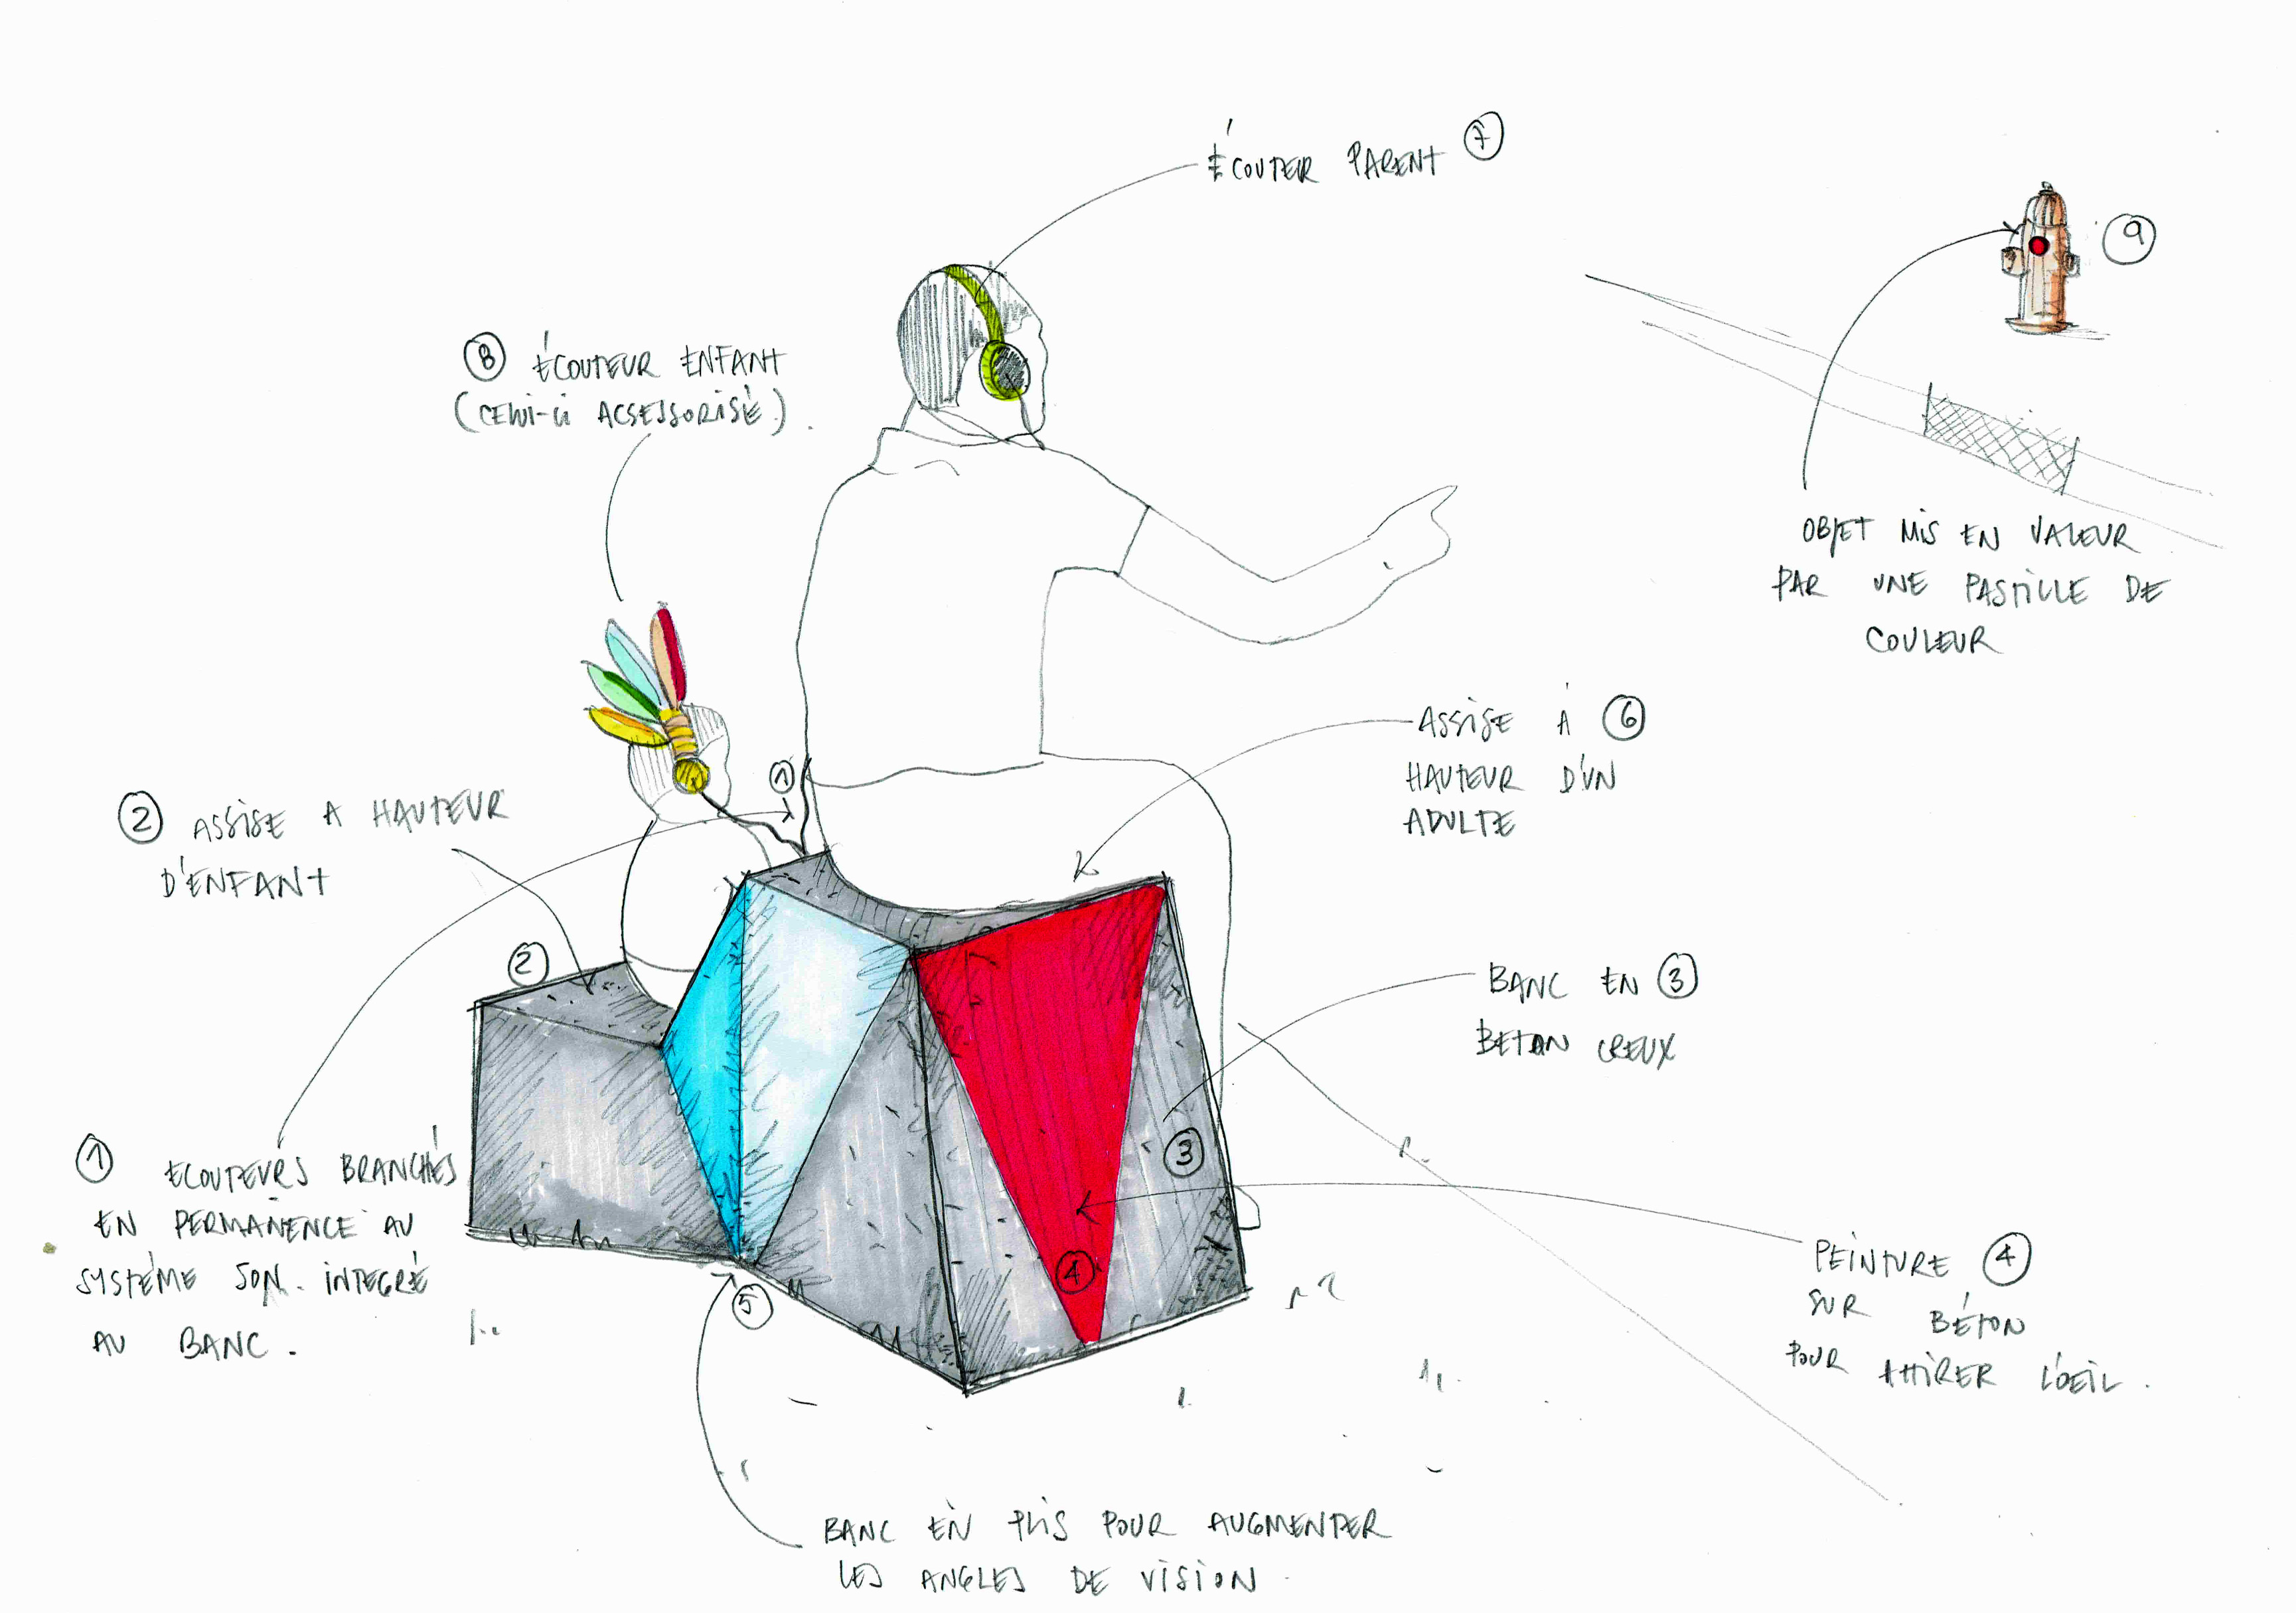 ÉCOUTER PARENT 7
9
8 ÉCOUTEUR ENFANT
(CELUI-CI ACSESSORISÉ).
OBJET MIS EN VALEUR
PAR UNE PASTILLE DE
COULEUR
ASSISE À 6
HAUTEUR D'UN
ADULTE
1
2 ASSISE A HAUTEUR
D'ENFANT
2
BANC EN 3
BETON CREUX
1 ECOUTEURS BRANCHÉS
EN PERMANENCE AU
SYSTÉME SON. INTEGRÉ
AU BANC.
3
4
5
PEINTURE 4
SUR BÉTON
POUR ATTIRER L'OEIL.
BANC EN PLIS POUR AUGMENTER
LES ANGLES DE VISION.